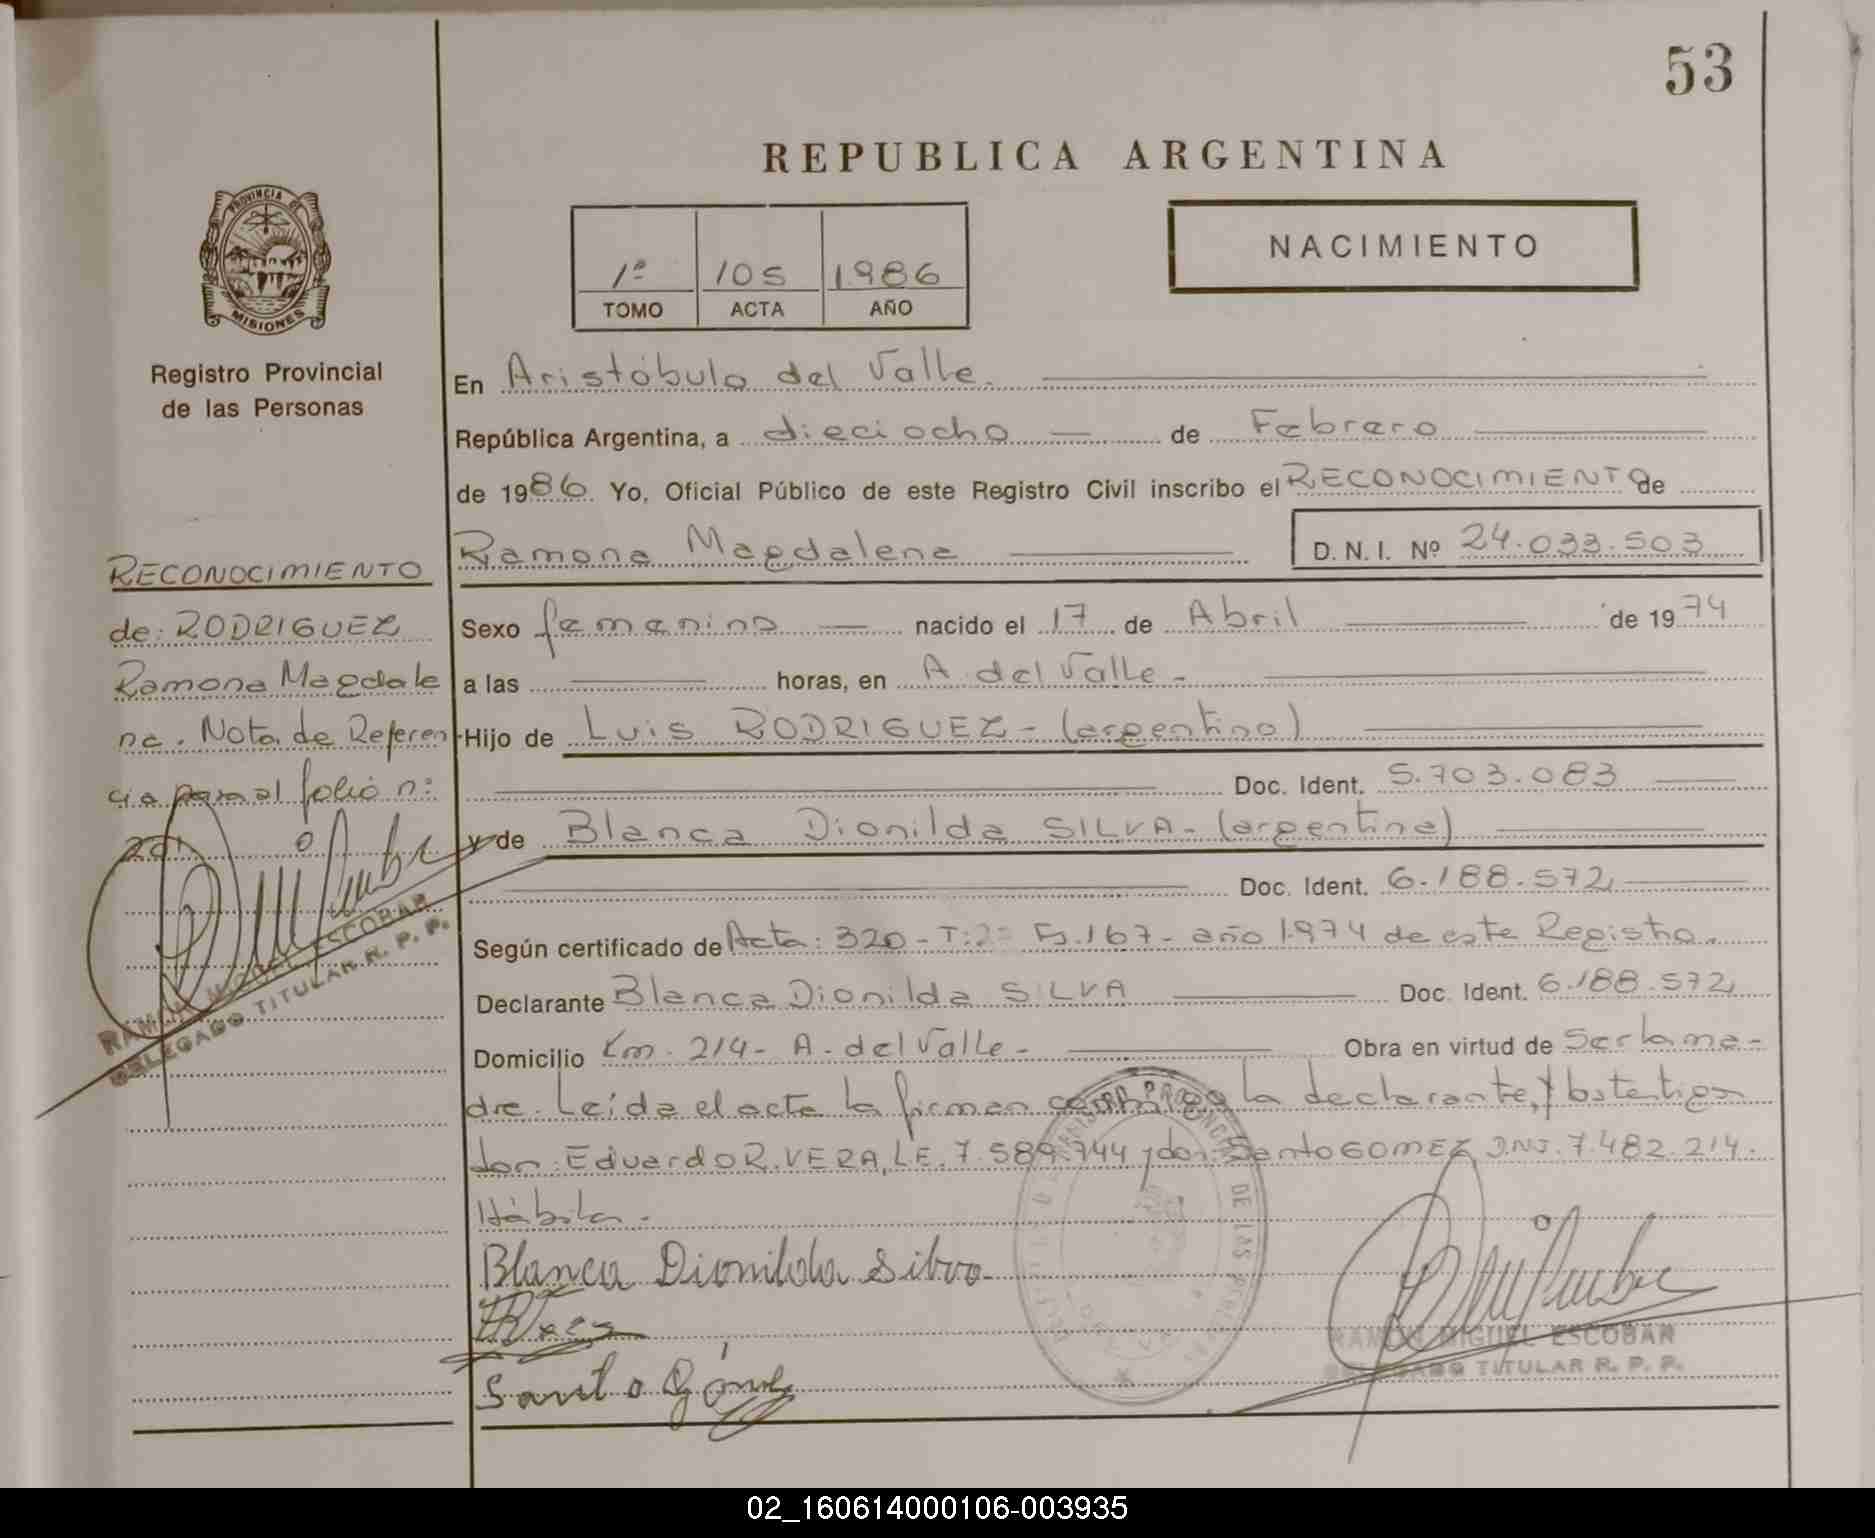 53
REPUBLICA ARGENTINA
PROVINCIA DE
MISIONES
Registro Provincial
de las Personas
1º 105 1986
TOMO ACTA AÑO
NACIMIENTO
En Aristóbulo del Valle.
República Argentina, a dieciocho — de Febrero
de 1986. Yo, Oficial Público de este Registro Civil inscribo el RECONOCIMIENTO de
Ramona Magdalena D. N. I. Nº 24.033.503
Sexo femenino — nacido el 17 de Abril de 1974
a las — horas, en A. del Valle -
Hijo de Luis RODRIGUEZ - (argentino)
Doc. Ident. 5.703.083
y de Blanca Dionilda SILVA - (argentina)
Doc. Ident. 6.188.572
Según certificado de Acta: 320 - T: 2º Fº.167 - año 1974 de este Registro.
Declarante Blanca Dionilda SILVA Doc. Ident. 6.188.572
Domicilio Km. 214 - A. del Valle - Obra en virtud de Ser la ma-
dre. Leída el acta la firman conmigo la declarante, y los testigos
don: Eduardo R. VERA, L.E. 7.589.744 y don: Santo GOMEZ D.N.I. 7.482.214.
Hábiles.-
Blanca Dionilda Silva
Santo Gómez
RAMON MIGUEL ESCOBAR
DELEGADO TITULAR R. P. P.
RECONOCIMIENTO
de: RODRIGUEZ
Ramona Magdale
na. Nota de Referen
cia para al folio n:
201
RAMON MIGUEL ESCOBAR
DELEGADO TITULAR R. P. P.
02_160614000106-003935